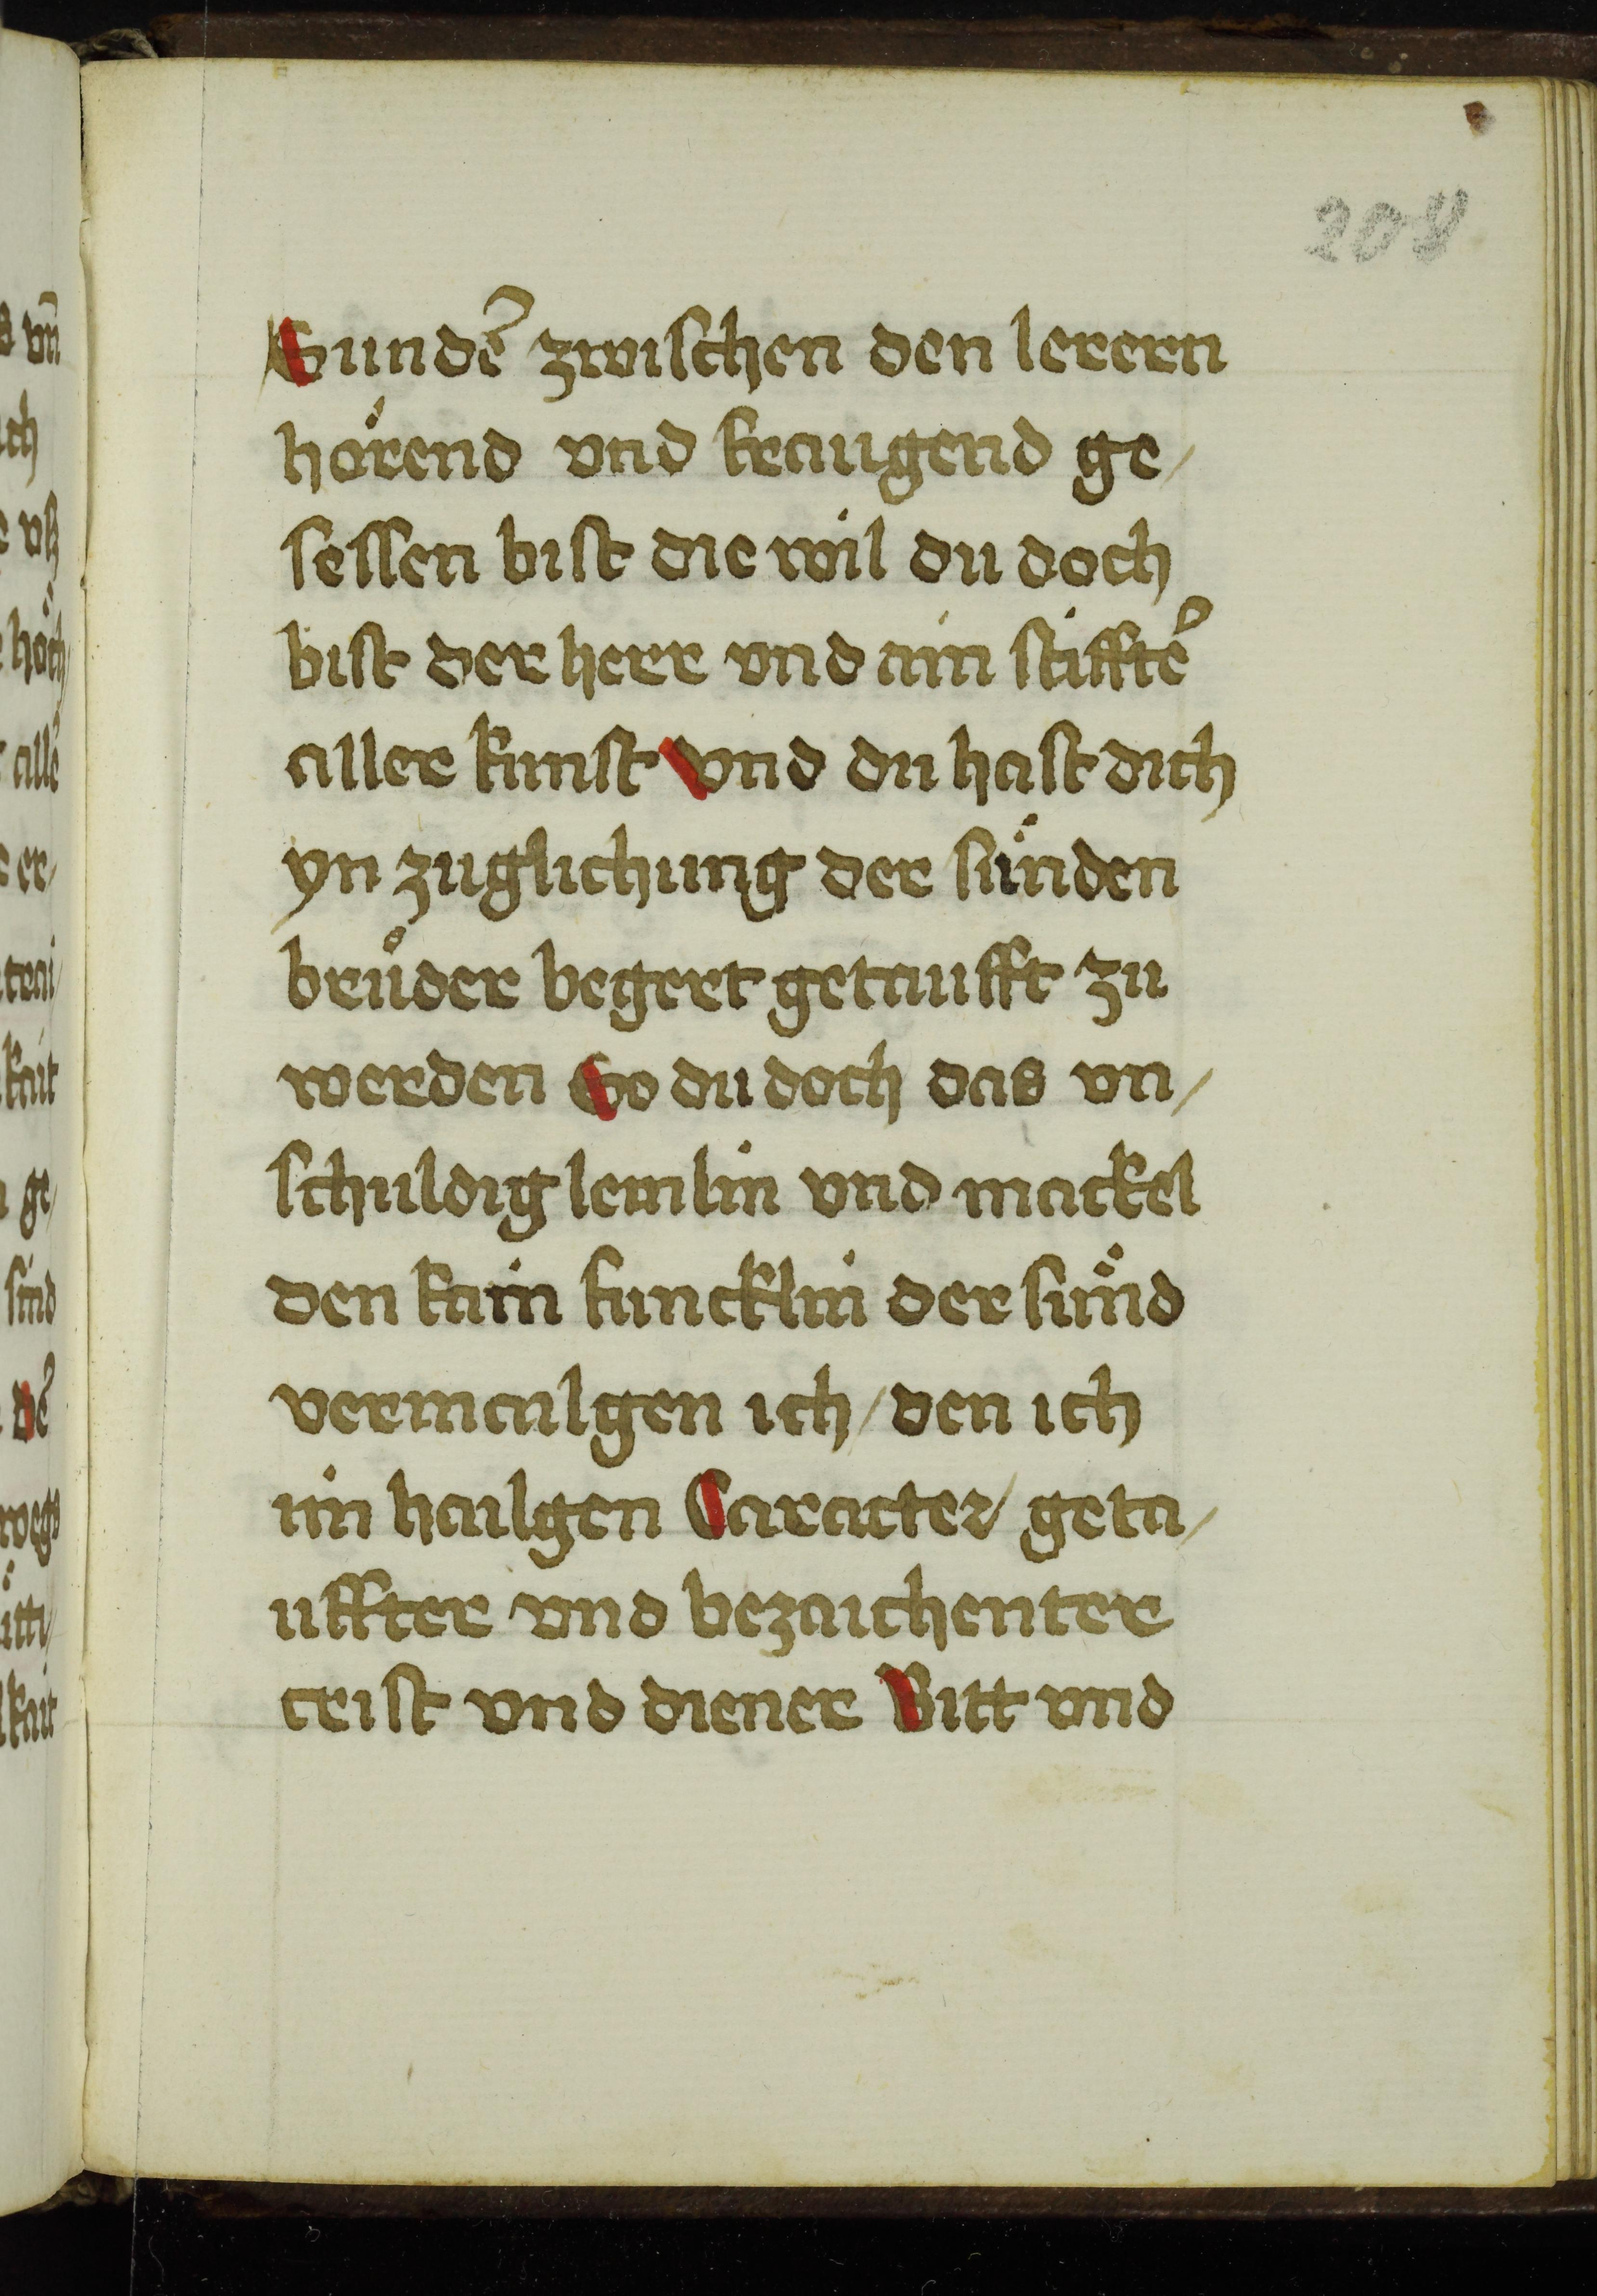 208
Sunder zwischen den lerern
hörend vnd fraugend ge/
sessen bist die wil du doch
bist der herr vnd ain stiffter
aller kunst vnd du hast dich
yn zuglichung der sünden
brüder begert getaufft zu
werden So du doch das vn/
schuldig lemlin vnd mackel
den kain funcklin der sünd
vermailgen ich / den ich
im hailgen Caracter geta/
uffter vnd bezaichenter
crist vnd diener Bitt vnd